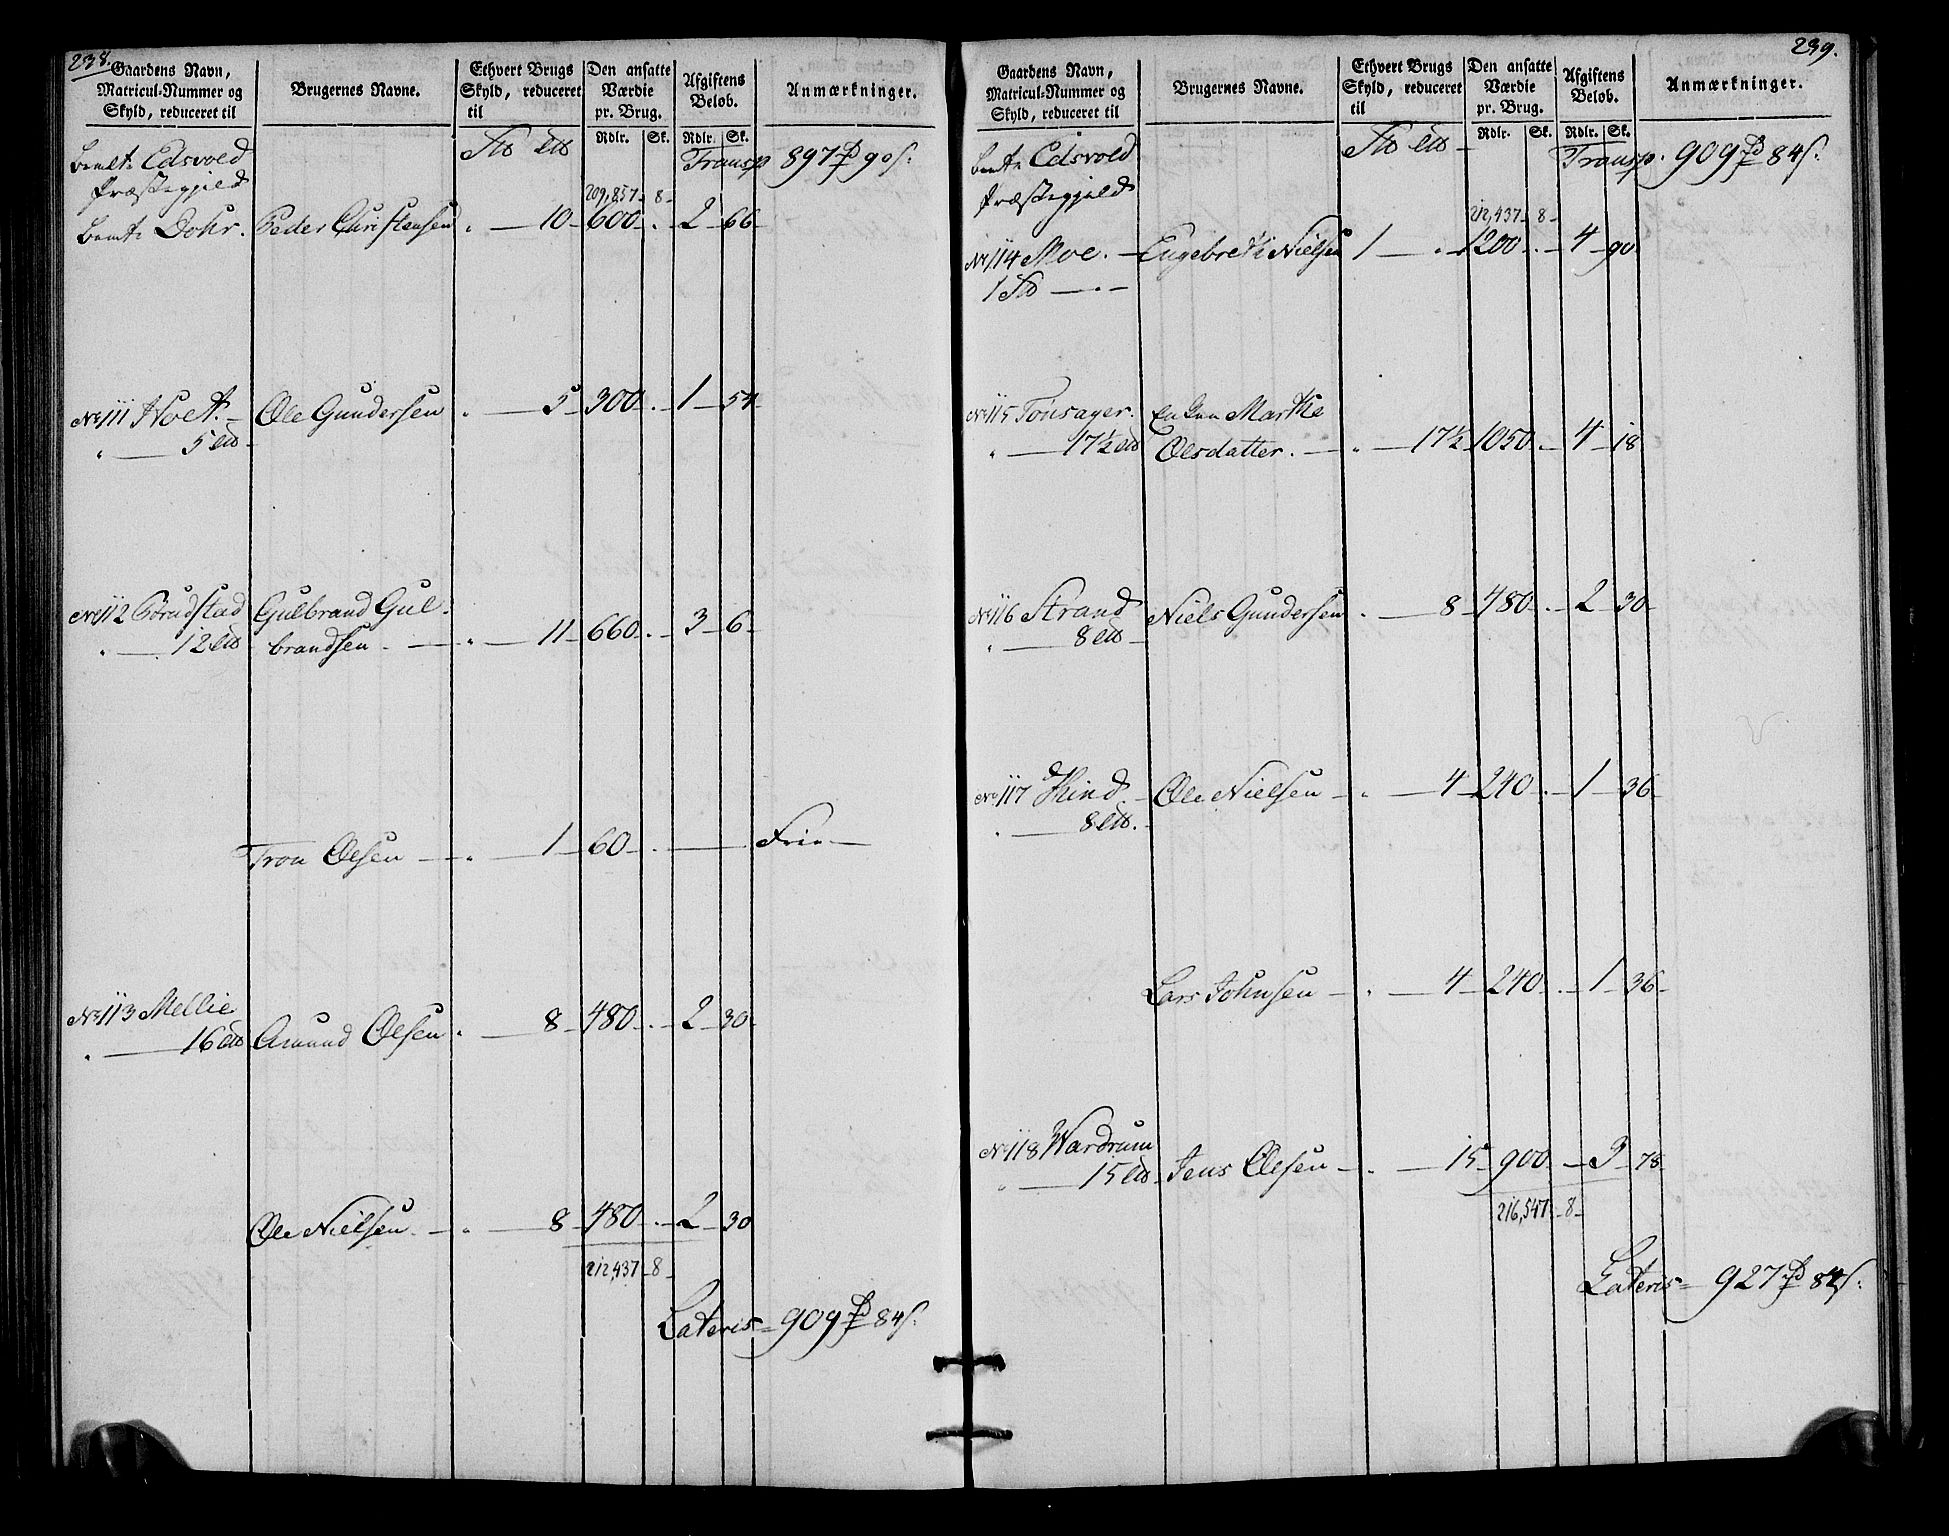 238.
Gaardens Navn, Matricul-Nummer og Skyld, reduceret til
Brugernes Navne.
Ethvert Brugs Skyld, reduceret til
Den ansatte Værdie pr. Brug.
Afgiftens Beløb.
Anmærkninger.
Rdlr. Sk. Rdlr. Sk.
Edsvold Transp 897 90
Præstegjeld
209,857 8
Dohr. Peder Christensen 10 600 2 66
No 111 Hoel. Ole Gundersen 5 300 1 54
5
No 112 Gulbrand Gul-
12 brandsen 11 660 3 6
Tron Olsen 1 60 Frie
No 113 Mellie
16 Amund Olsen 8 480 2 30
Ole Nielsen 8 480 2 30
212,437 8
Lateris 909 84
239.
Gaardens Navn, Matricul-Nummer og Skyld, reduceret til
Brugernes Navne.
Ethvert Brugs Skyld, reduceret til
Den ansatte Værdie pr. Brug.
Afgiftens Beløb.
Anmærkninger.
Rdlr. Sk. Rdlr. Sk.
Edsvold Transp. 909 84
Præstegjeld
212,437 8
No 114 Moe. Engebreth Nielsen 1 1200 4 90
1
No 115 Tonsager. Enken Marthe
17½ Olsdatter. 17½ 1050 4 18
No 116 Strand Niels Gundersen 8 480 2 30
8
No 117 Hind Ole Nielsen 4 240 1 36
8
Lars Johnsen 4 240 1 36
No 118 Wardrum
15 Jens Olsen 15 900 3 78
216,547 8
Lateris 927 84